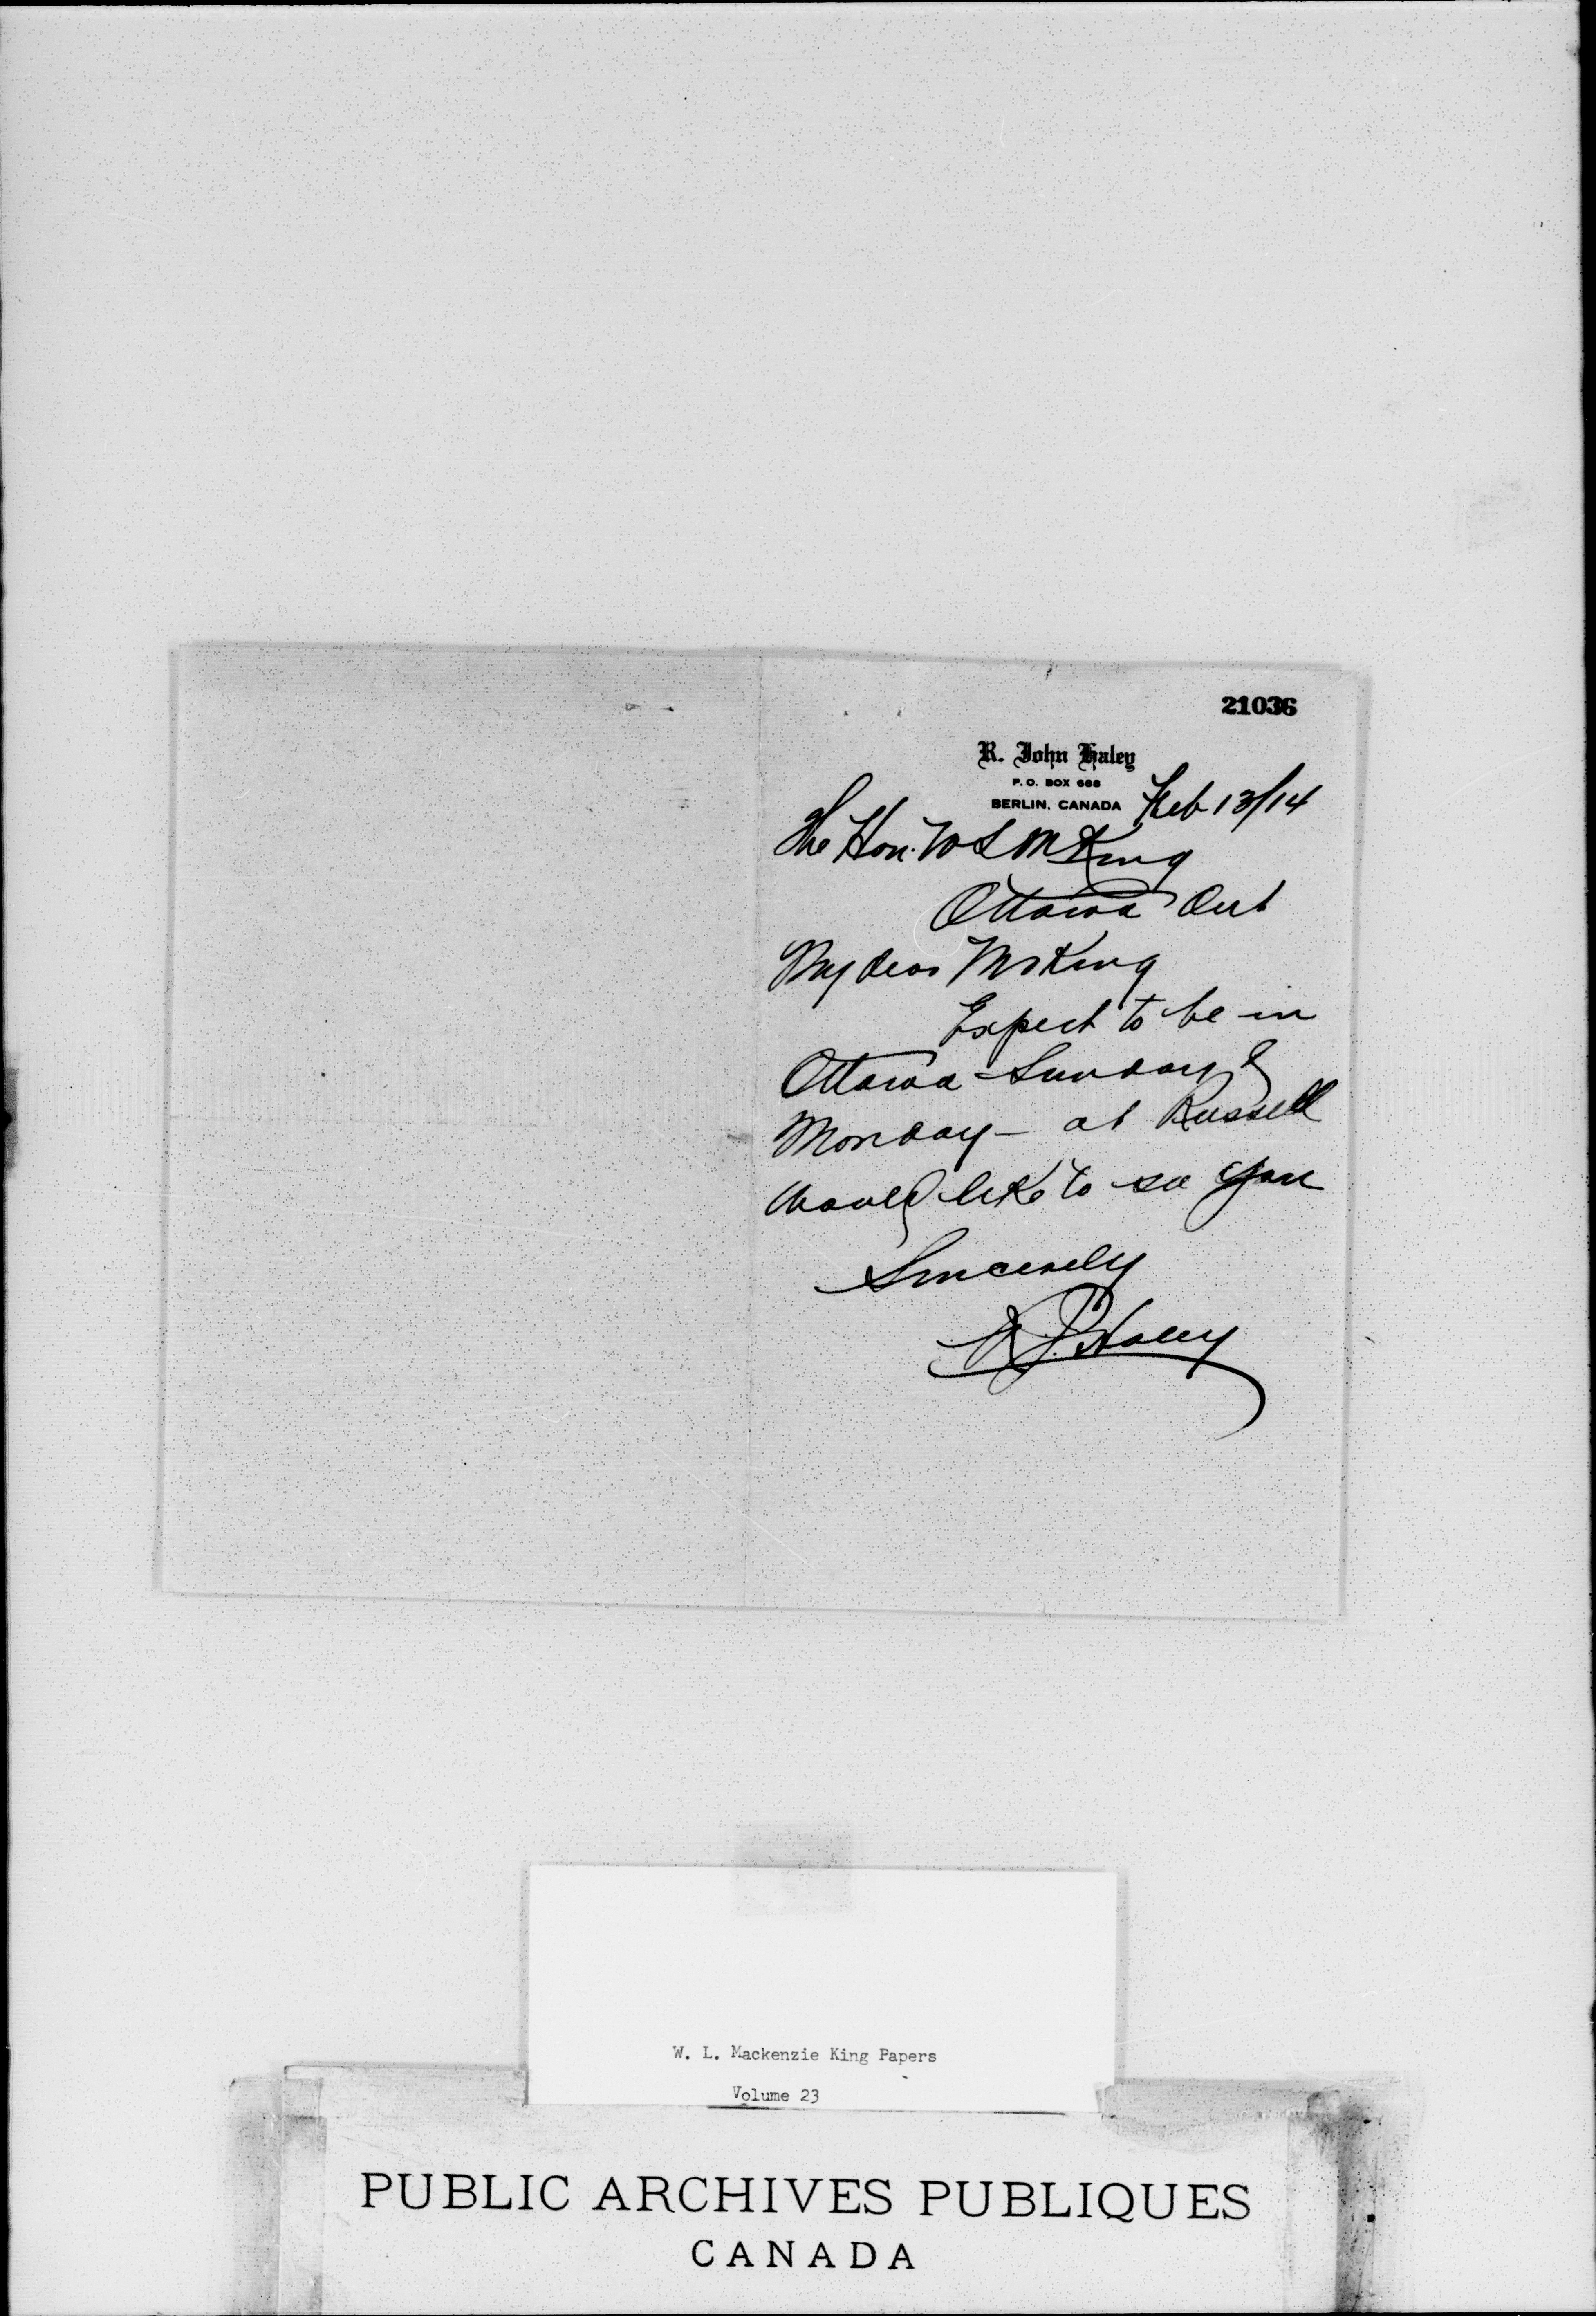 21036
R. John Haley
P. O. BOX 688
BERLIN, CANADA
Feb 13/14
The Hon. W L M King
Ottawa Ont
My dear Mr King
Expect to be in
Ottawa Sunday &
Monday - at Russell
would like to see you
Sincerely
R J Haley
W. L. Mackenzie King Papers
Volume 23
PUBLIC ARCHIVES PUBLIQUES
CANADA